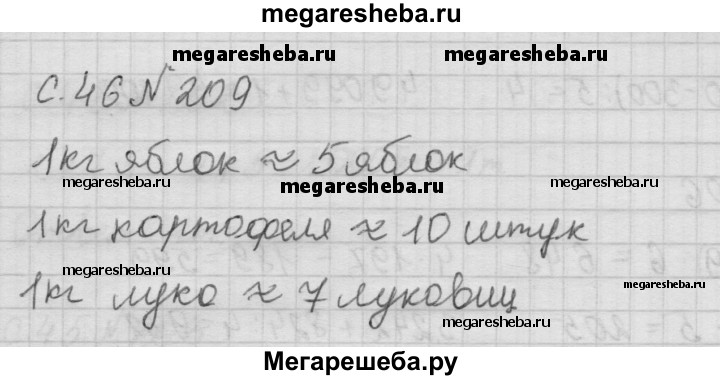 megaresheba.ru
megaresheba.ru megaresheba.ru
с. 46 № 209
1кг яблок ≈ 5 яблок
megaresheba.ru megaresheba.ru megaresheba.ru
1кг картофеля ≈ 10 штук
megaresheba.ru megaresheba.ru
1кг луко ≈ 7 луковиц
megaresheba.ru
Мегарешеба.ру